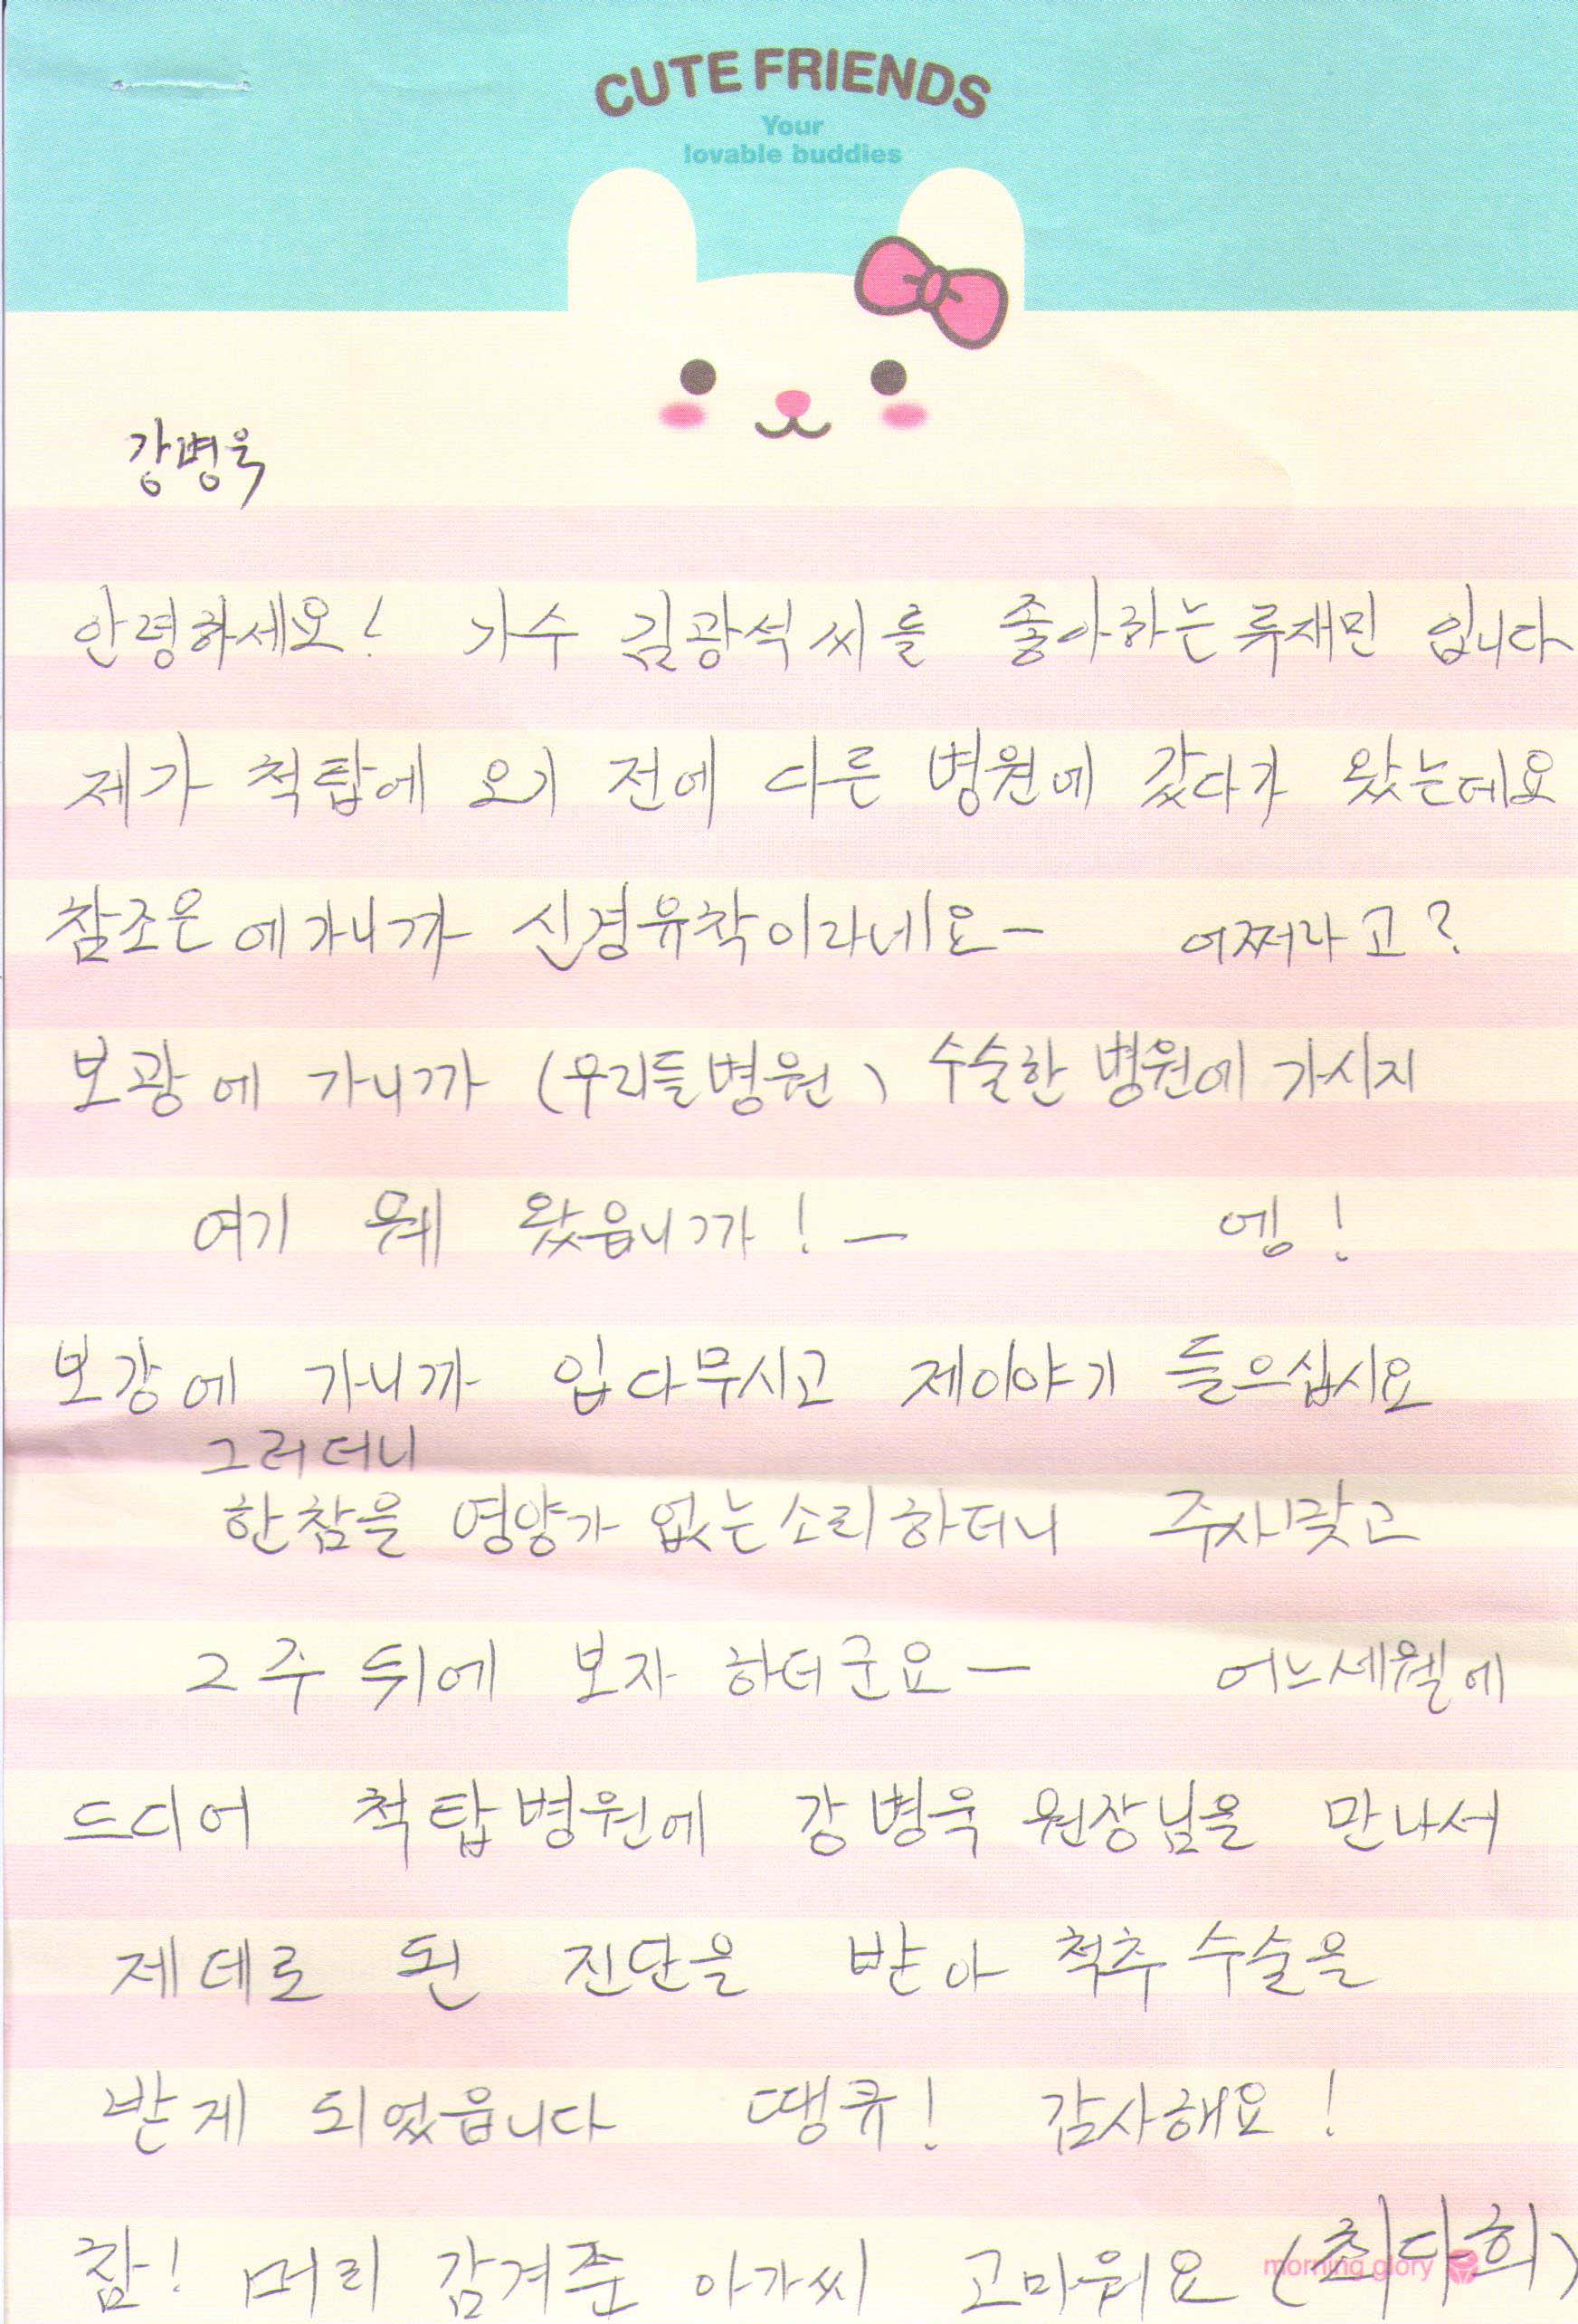 CUTE FRIENDS
Your
lovable buddies
강병욱
안녕하세요! 가수 김광석씨를 좋아하는 류재민 입니다
제가 척탑에 오기 전에 다른 병원에 갔다가 왔는데요
참조은에 가니까 신경유착이라네요- 어쩌라고?
보광에 가니까 (우리들병원) 수술한 병원에 가시지
여기 뭐 왔읍니까! - 엥!
보강에 가니까 입다무시고 제이야기 들으십시요
그러더니
한참을 영양가 없는소리하더니 주사맞고
2주 뒤에 보자 하더군요- 어느세월에
드디어 척탑병원에 강병욱 원장님을 만나서
제데로 된 진단을 받아 척추수술을
받게 되었읍니다 땡큐! 감사해요!
참! 머리 감겨준 아가씨 고마워요 (최다희)
morning glory